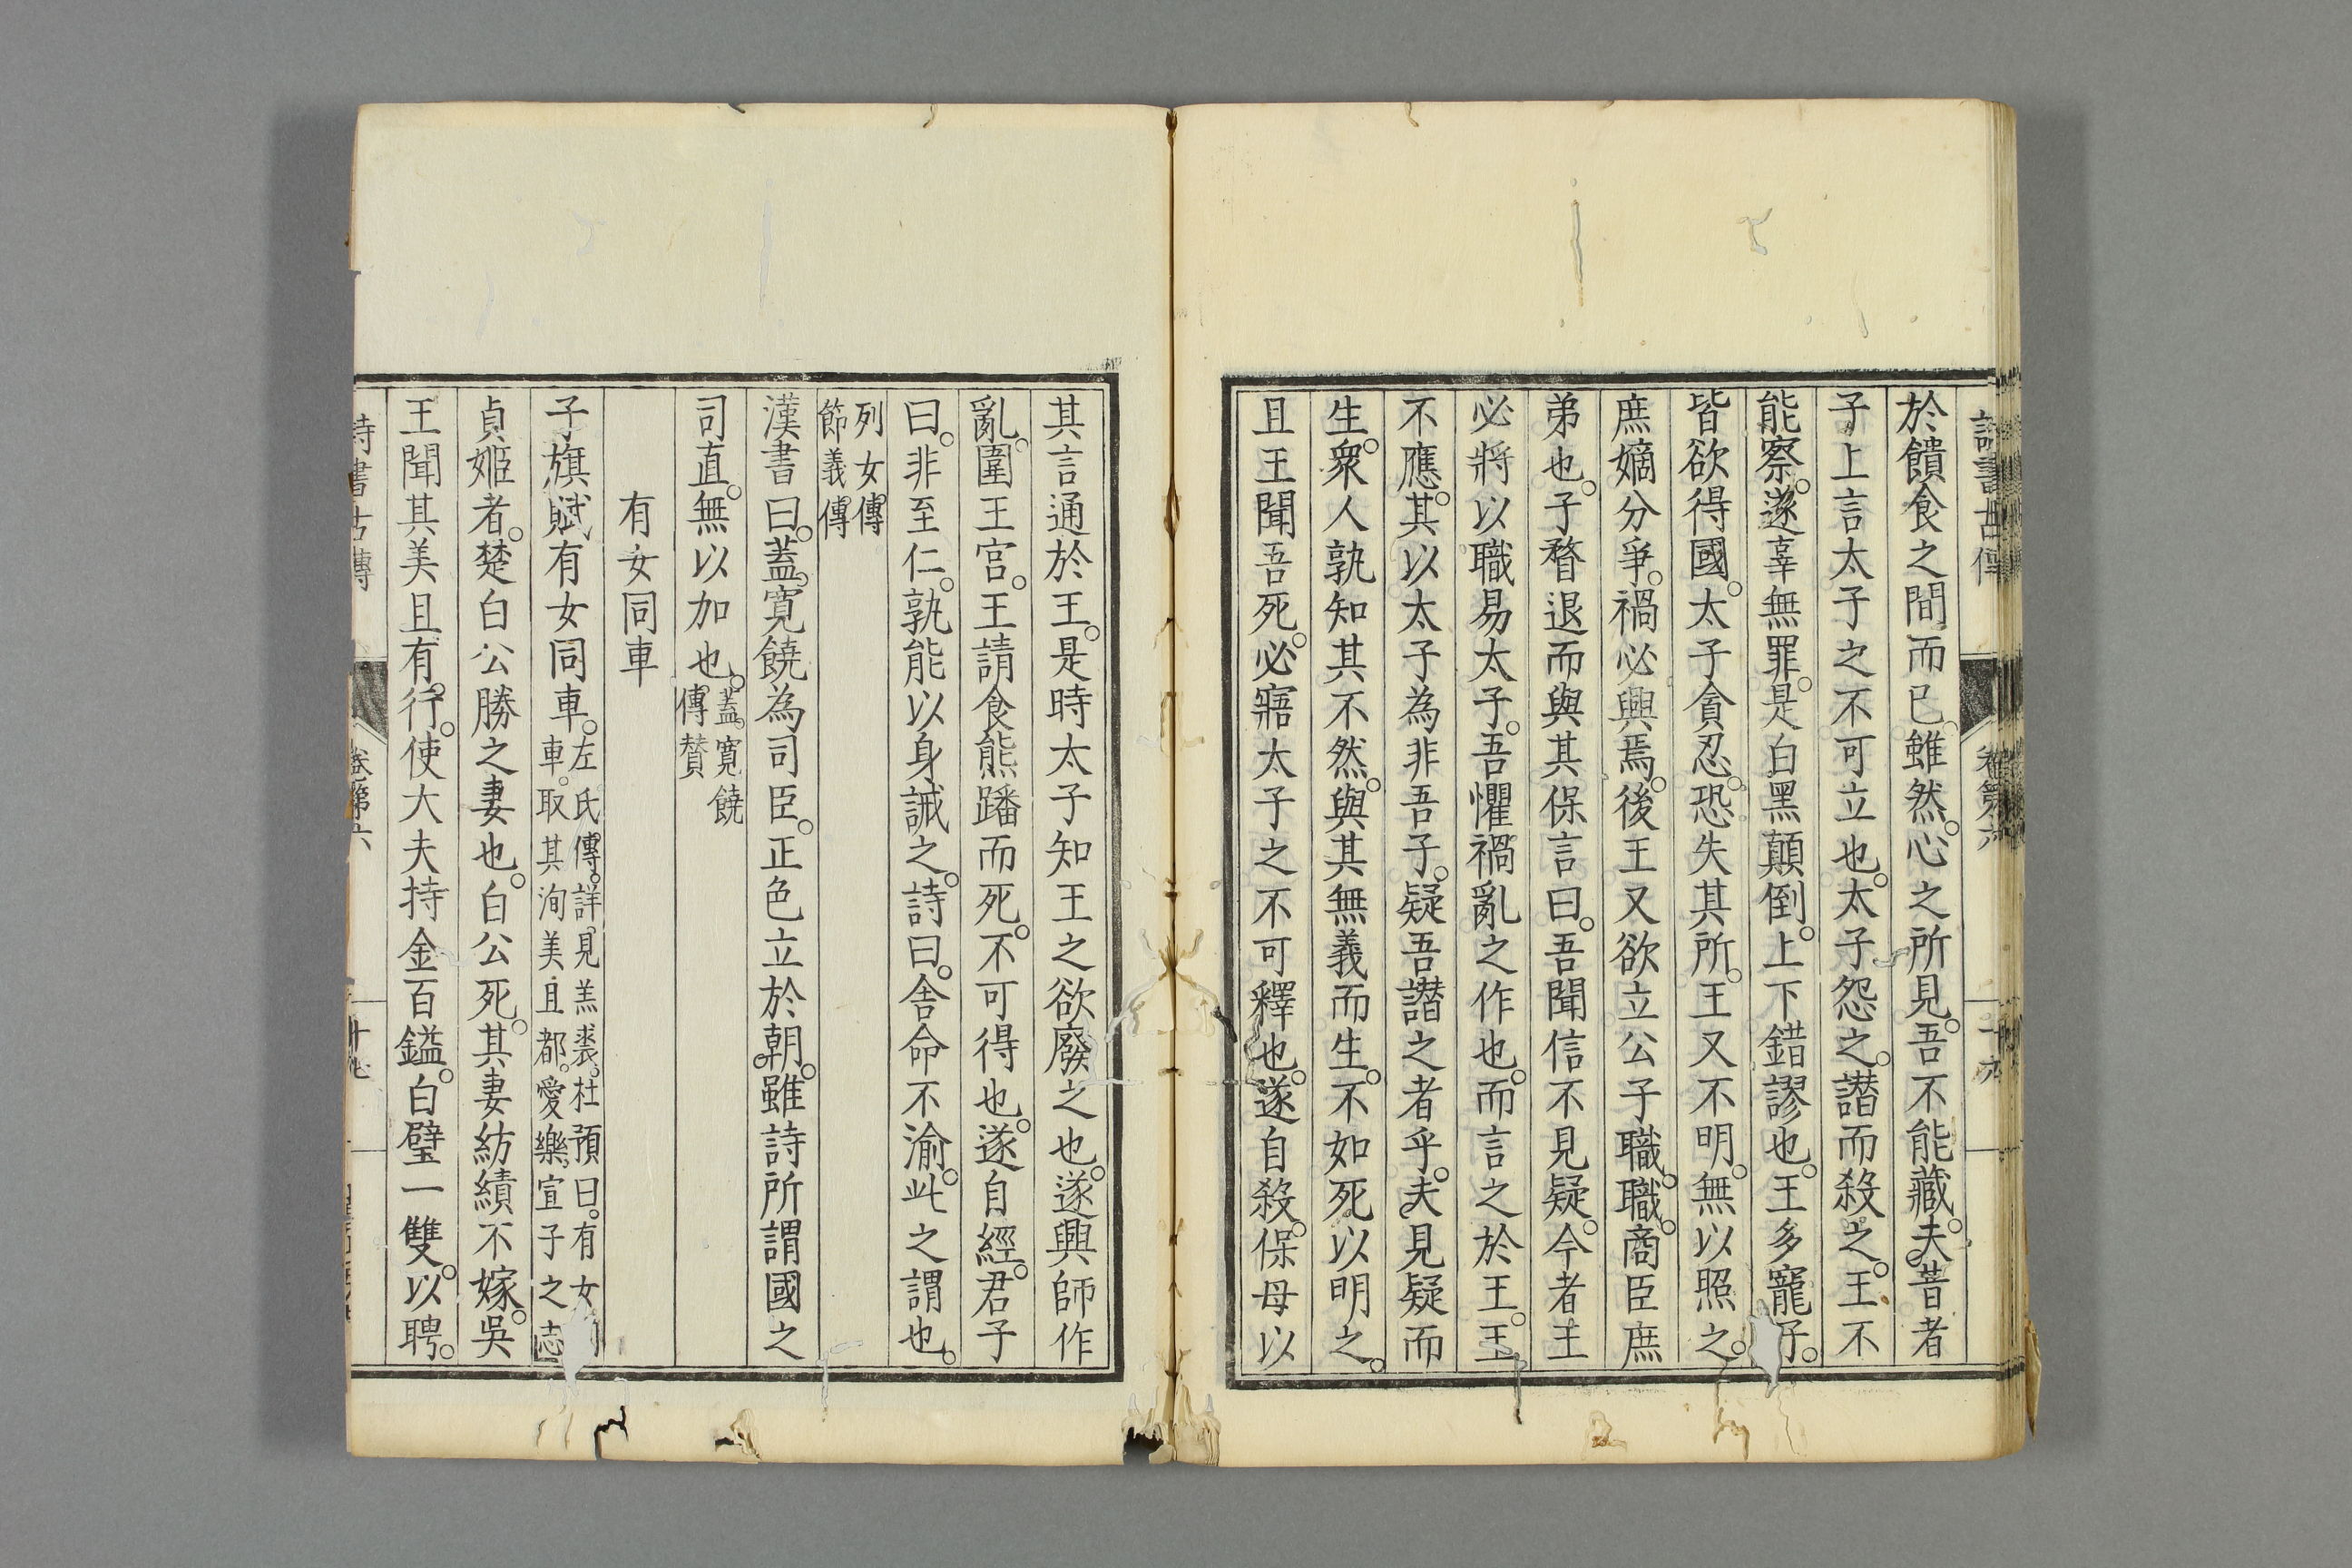 詩書古傳 卷第六
於饋食之間而已雖然心之所見吾不能藏夫昔者
子上言太子之不可立也太子怨之譖而殺之王不
能察遂辜無罪是白黑顛倒上下錯謬也王多寵子
皆欲得國太子貪忍恐失其所王又不明無以照之
庶嫡分爭禍必興焉後王又欲立公子職職商臣庶
弟也子瞀退而與其保言曰吾聞信不見疑今者王
必將以職易太子吾懼禍亂之作也而言之於王王
不應其以太子為非吾子疑吾譖之者乎夫見疑而
生衆人孰知其不然與其無義而生不如死以明之
且王聞吾死必寤太子之不可釋也遂自殺保母以
其言通於王是時太子知王之欲廢之也遂興師作
亂圍王宮王請食熊蹯而死不可得也遂自經君子
曰非至仁孰能以身誡之詩曰舍命不渝此之謂也
列女傳
節義傳
漢書曰蓋寬饒為司臣正色立於朝雖詩所謂國之
司直無以加也蓋寬饒
傳贊
有女同車
子旗賦有女同車左氏傳詳見羔裘杜預曰有女同
車取其洵美且都愛樂宣子之志
貞姬者楚白公勝之妻也白公死其妻紡績不嫁吳
王聞其美且有行使大夫持金百鎰白璧一雙以聘
詩書古傳 卷第六